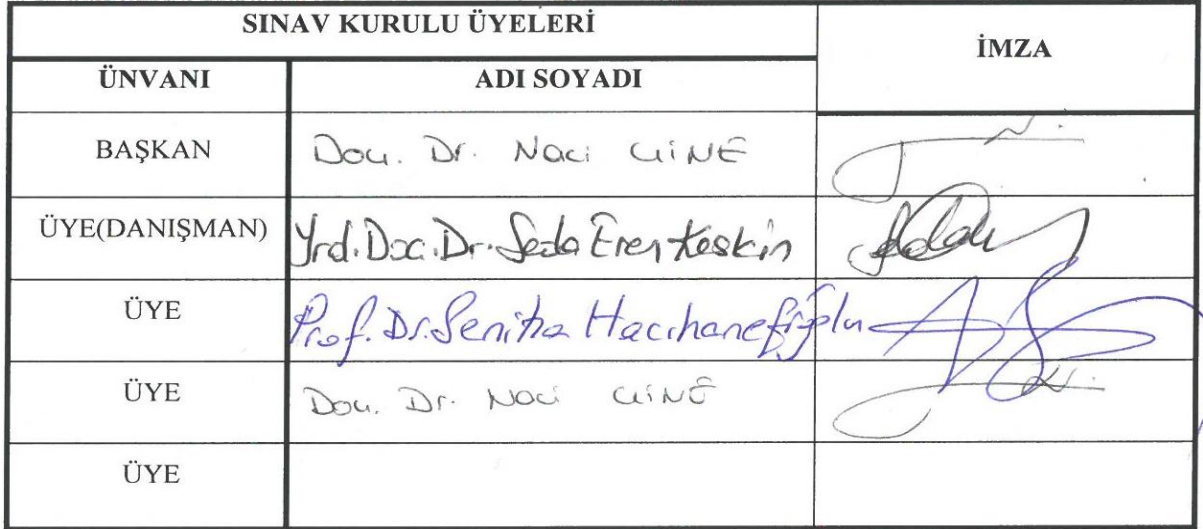 SINAV KURULU ÜYELERİ
İMZA
ÜNVANI ADI SOYADI
BAŞKAN Doç. Dr. Naci
ÜYE(DANIŞMAN) Yrd.Doç.Dr.Seda Eren Keskin
ÜYE Prof.Dr.Seniha Hacıhanefioğlu
ÜYE Doç. Dr. Naci
ÜYE